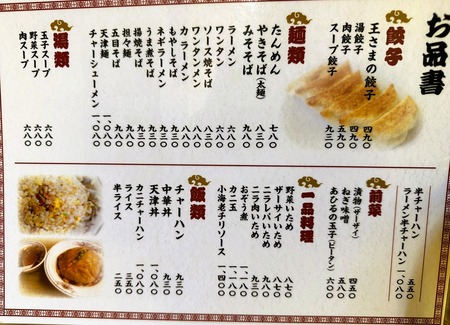 お品書
餃子
王さまの餃子 四九〇
湯餃子 四九〇
肉餃子 五九〇
スープ餃子 九三〇
麺類
たんめん 七八〇
やきそば(太麺) 八三〇
みそそば
ラーメン 六八〇
ワンタン
ソース焼そば
ワンタンメン
カラーメン
もやしそば
ネギラーメン
うま煮そば
揚焼そば
担々麺
五目そば 九八〇
天津麺 一、〇八〇
チャーシューメン 一、〇八〇
湯類
玉子スープ 六八〇
野菜スープ 六八〇
肉スープ 六八〇
半チャーハン 五五〇
ラーメン半チャーハン 一、〇五〇
前菜
漬物(ザーサイ) 四五〇
ねぎ味噌 五八〇
あひるの玉子(ピータン) 六〇〇
一品料理
野菜いため 八七〇
ザーサイいため 八七〇
ニラレバいため
ニラ肉いため 九三〇
おぞう煮
カニ玉
小海老チリソース 一、四八〇
飯類
チャーハン 九三〇
中華丼 九三〇
天津丼 一、〇八〇
カニチャーハン 一、〇八〇
ライス 三五〇
半ライス 二五〇